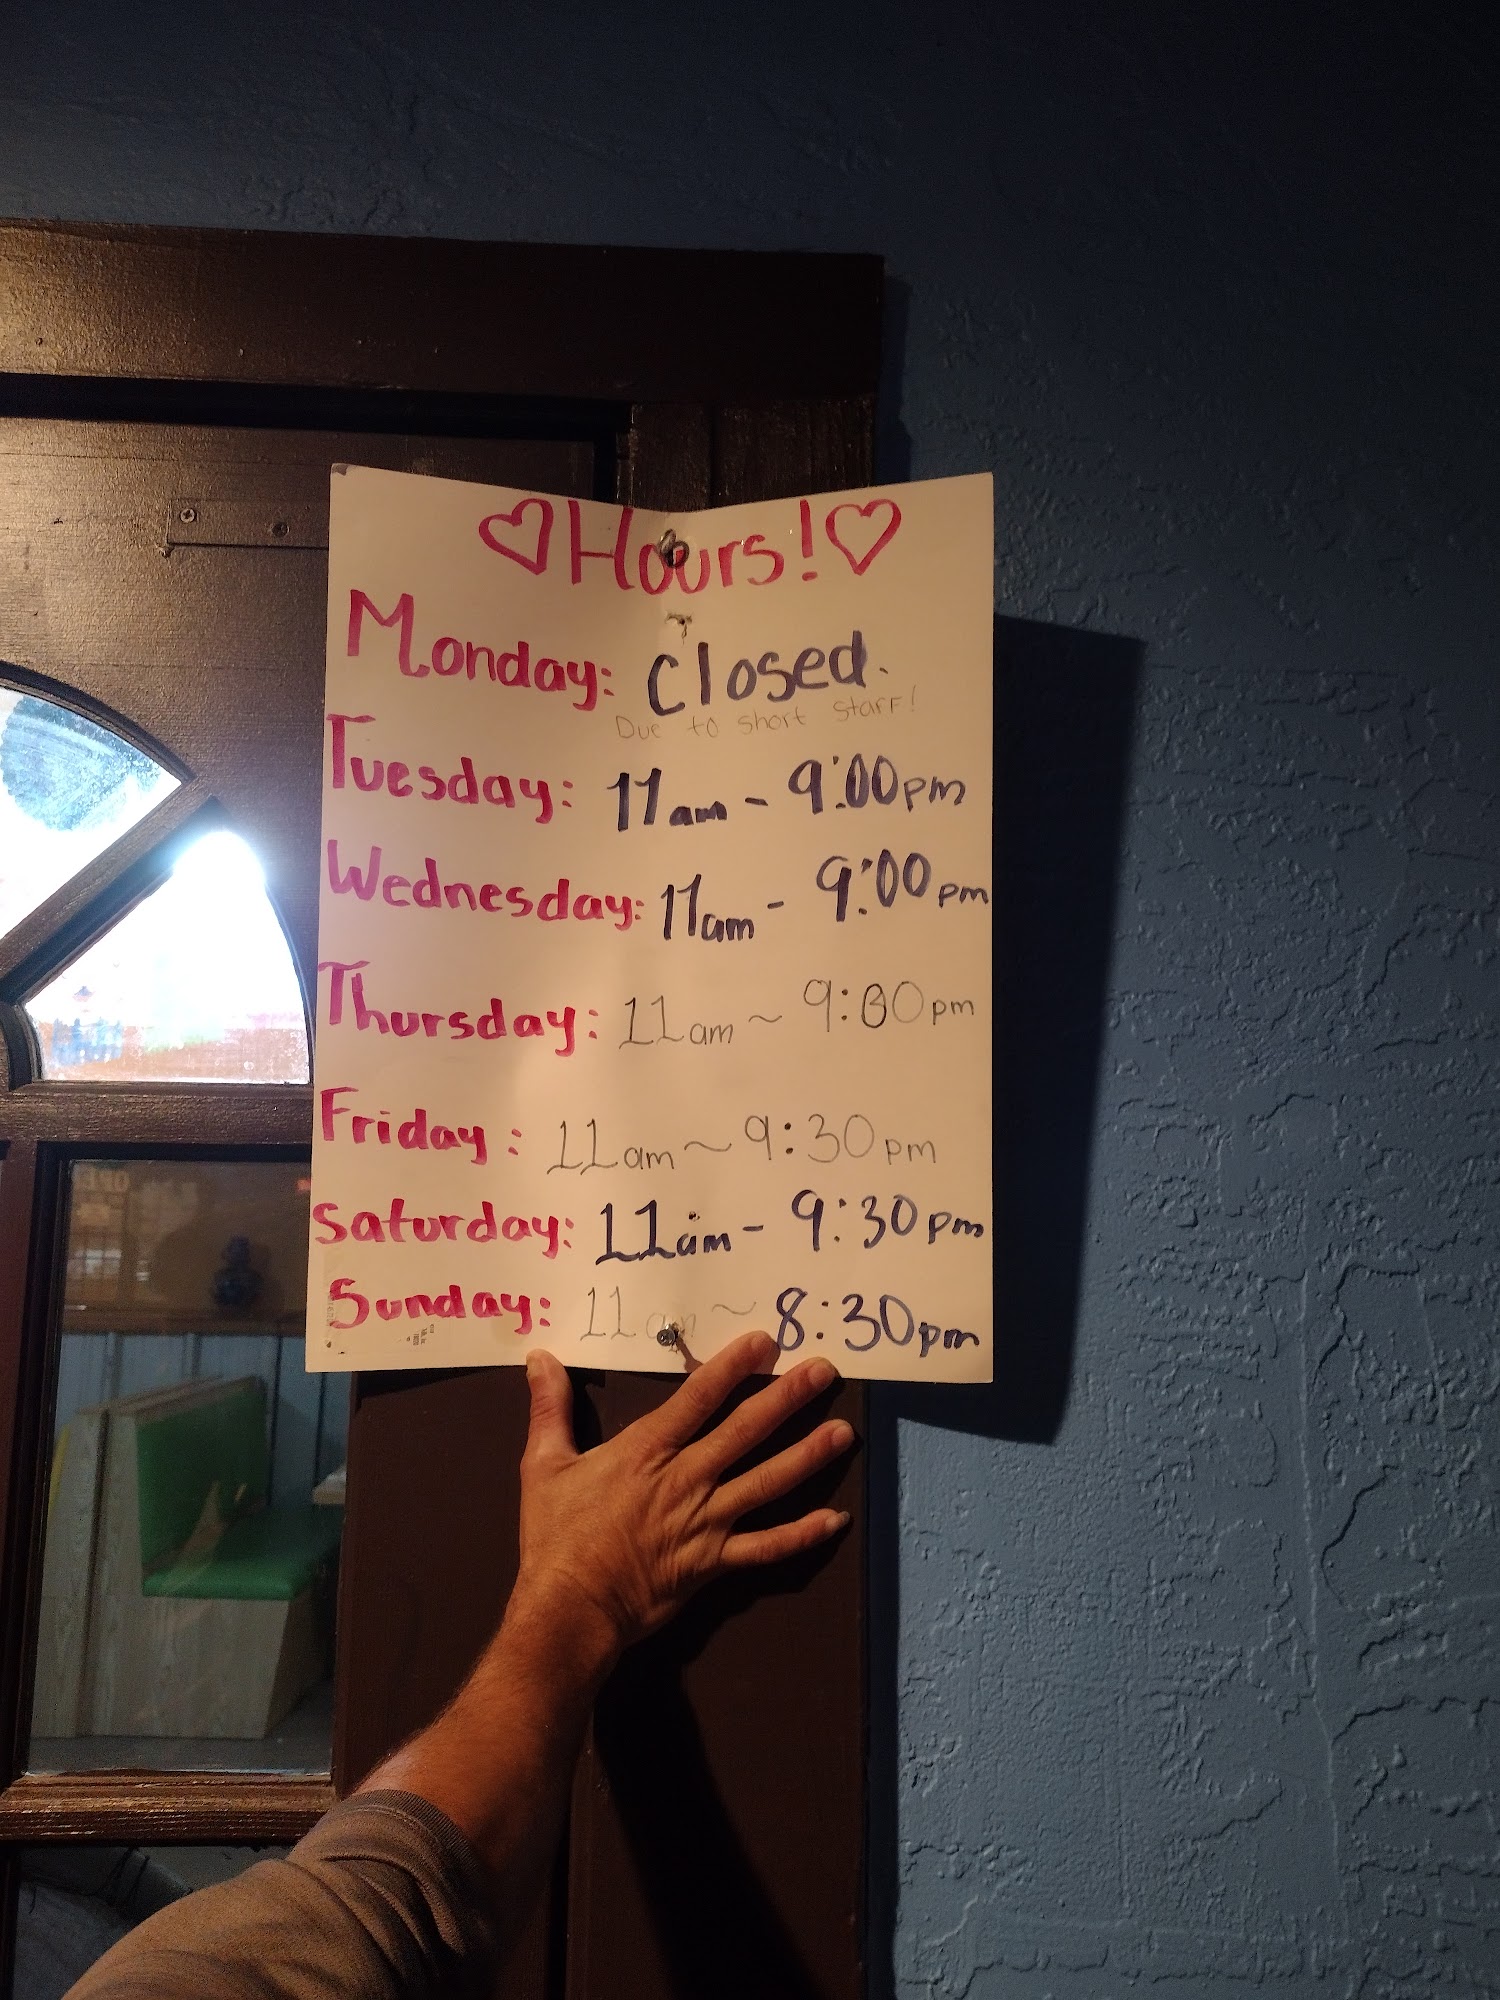 ♡Hours!♡
Monday: Closed.
Due to short staff!
Tuesday: 11am - 9:00pm
Wednesday: 11am - 9:00pm
Thursday: 11am ~ 9:00pm
Friday: 11am ~ 9:30pm
Saturday: 11am - 9:30pm
Sunday: 11am ~ 8:30pm